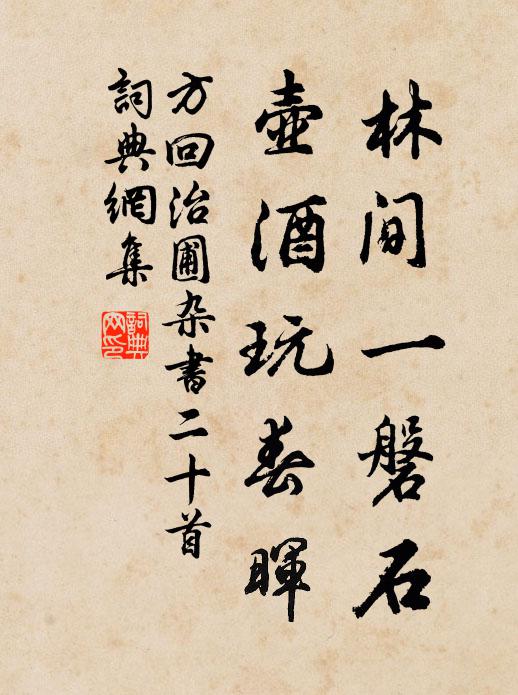 林間一磐石
壺酒玩春暉
方回治圃杂書二十首
詞典網集
詞典网印